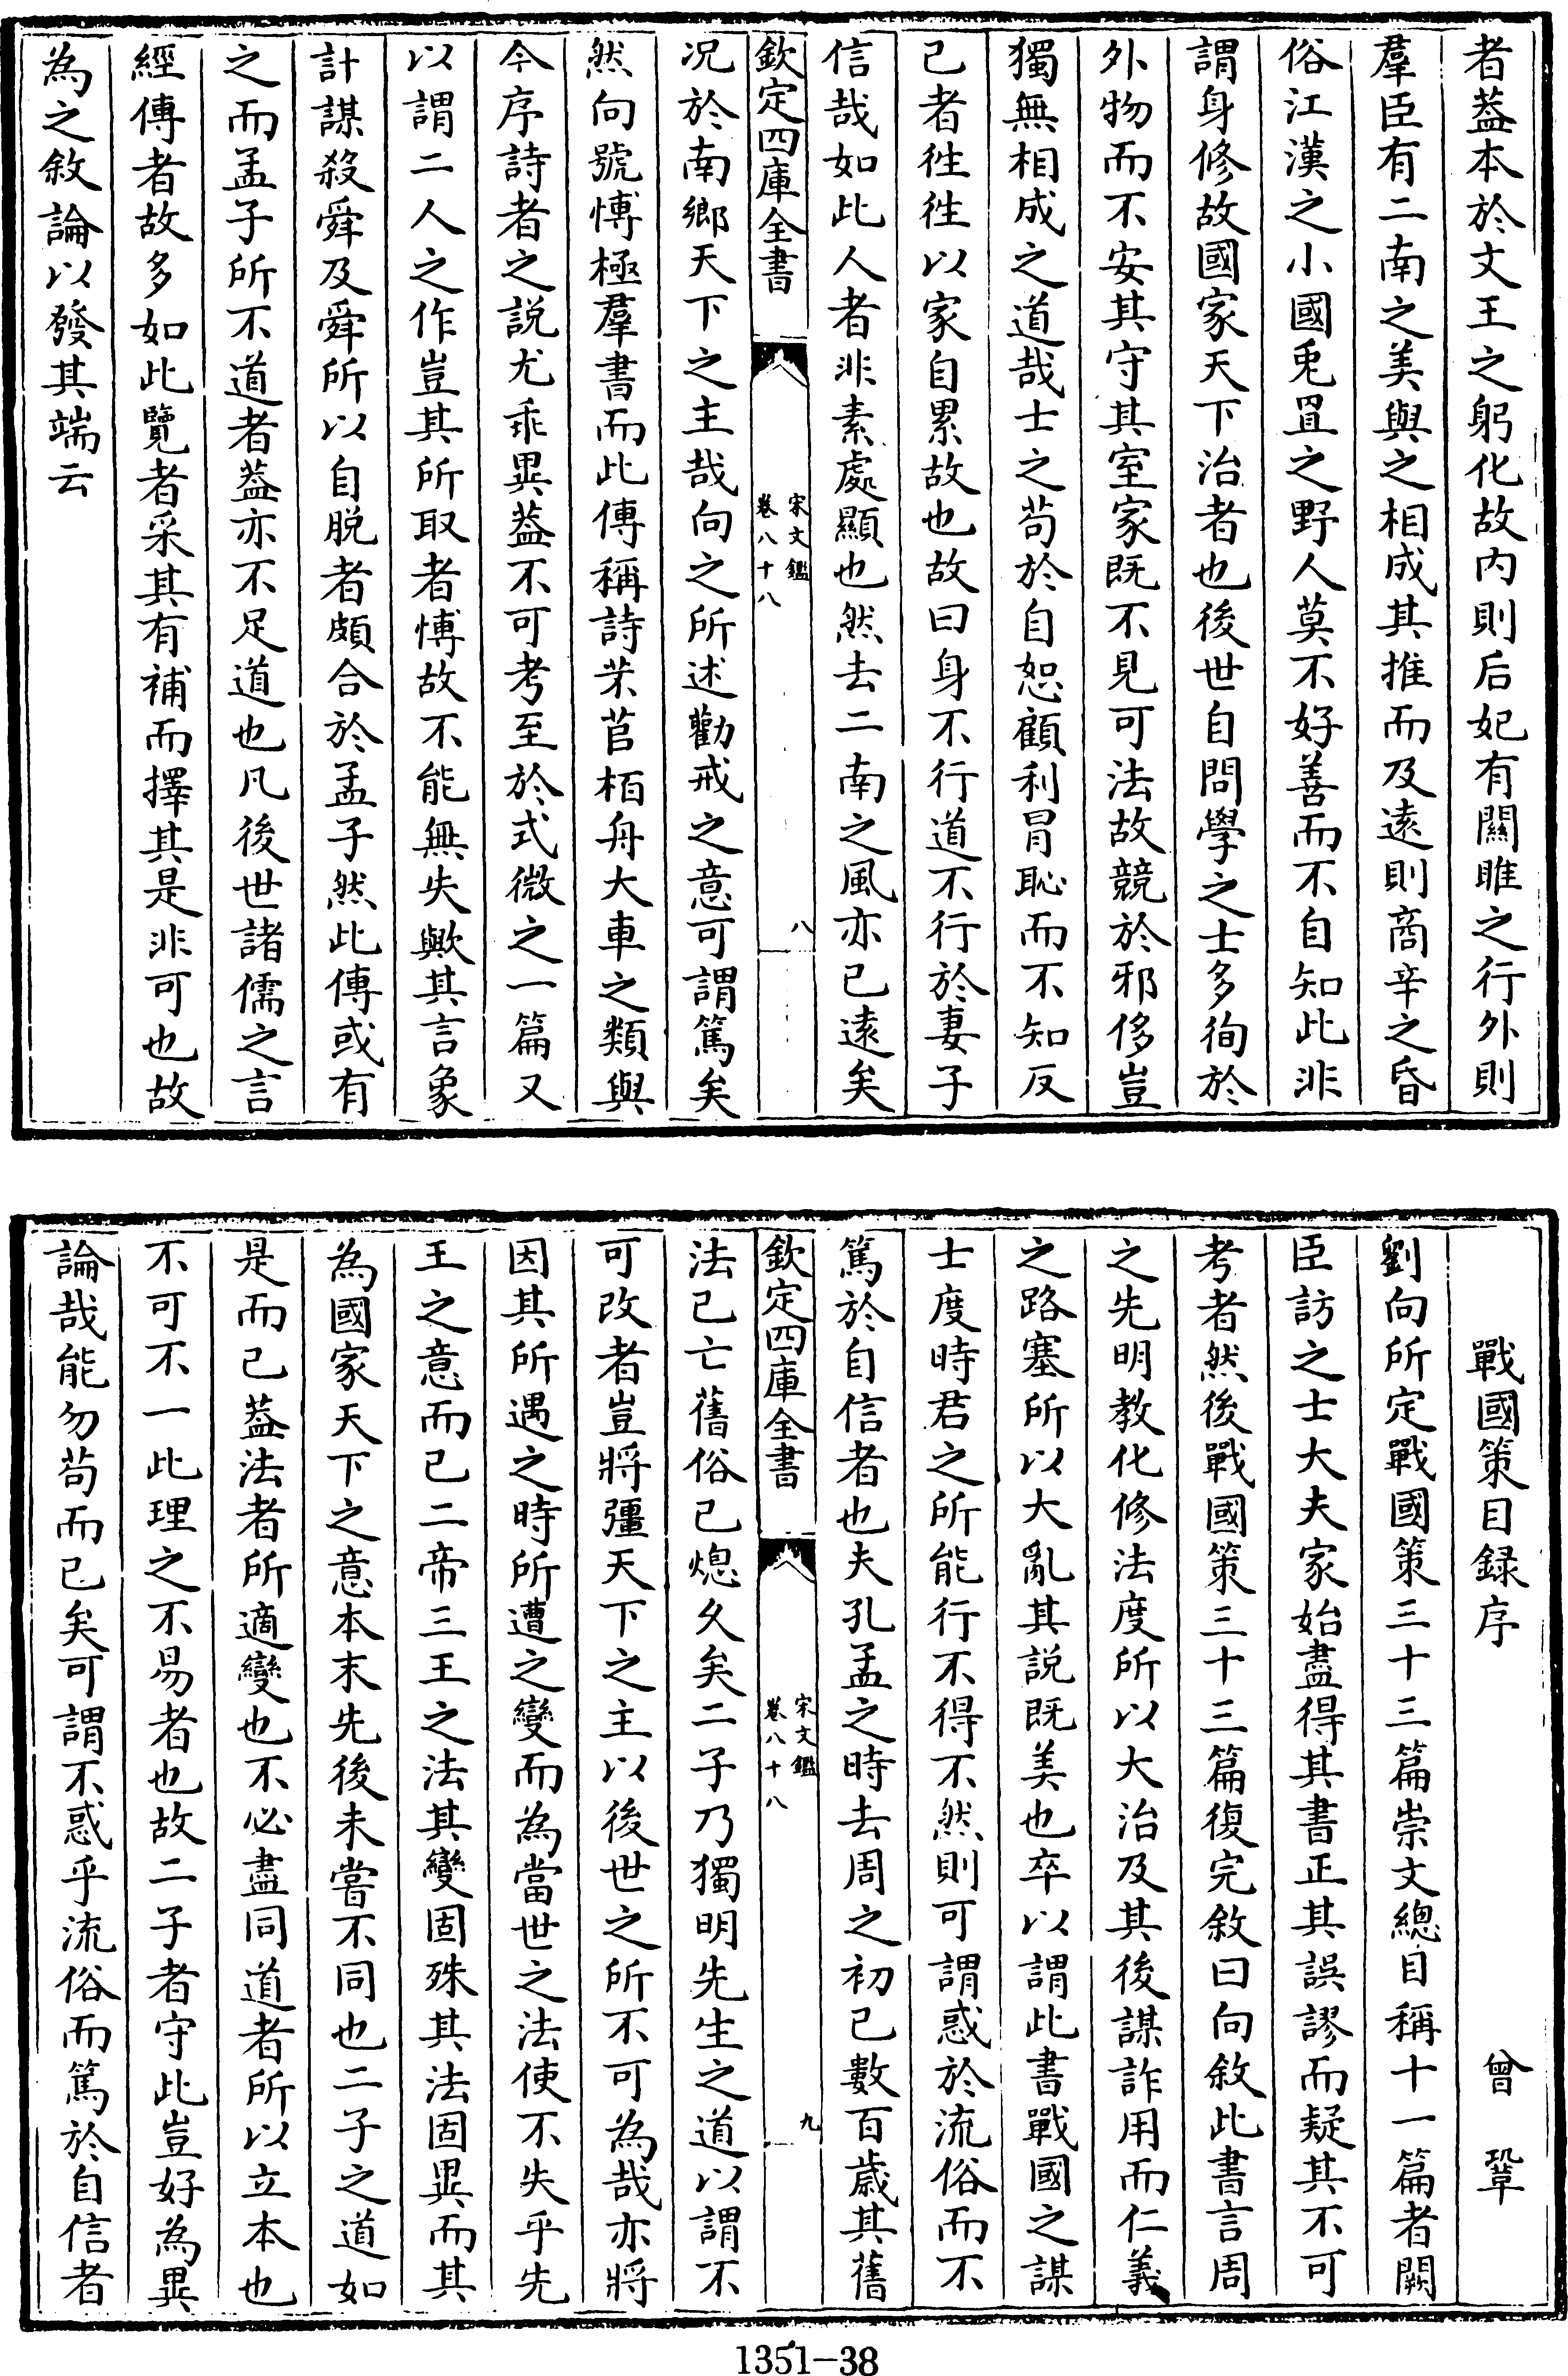 者葢本於文王之躬化故内則后妃有關雎之行外則
羣臣有二南之美與之相成其推而及逺則商辛之昏
俗江漢之小國兎罝之野人莫不好善而不自知此非
謂身修故國家天下治者也後世自問學之士多徇於
外物而不安其守其室家既不見可法故競於邪侈豈
獨無相成之道哉士之茍於自恕顧利冒恥而不知反
已者徃徃以家自累故也故曰身不行道不行於妻子
信哉如此人者非素處顯也然去二南之風亦已逺矣
欽定四庫全書
宋文鑑
卷八十八
八
况於南鄉天下之主哉向之所述勸戒之意可謂篤矣
然向號博極羣書而此傳稱詩芣苢栢舟大車之類與
今序詩者之説尤乖異葢不可考至於式微之一篇又
以謂二人之作豈其所取者博故不能無失歟其言象
計謀殺舜及舜所以自脱者頗合於孟子然此傳或有
之而孟子所不道者葢亦不足道也凡後世諸儒之言
經傳者故多如此覽者采其有補而擇其是非可也故
為之敘論以發其端云
戰國策目録序
曾鞏
劉向所定戰國策三十三篇崇文總目稱十一篇者闕
臣訪之士大夫家始盡得其書正其誤謬而疑其不可
考者然後戰國策三十三篇復完敘曰向敘此書言周
之先明教化修法度所以大治及其後謀詐用而仁義
之路塞所以大亂其説既美也卒以謂此書戰國之謀
士度時君之所能行不得不然則可謂惑於流俗而不
篤於自信者也夫孔孟之時去周之初已數百歲其舊
欽定四庫全書
宋文鑑
卷八十八
九
法已亡舊俗已熄久矣二子乃獨明先生之道以謂不
可改者豈將彊天下之主以後世之所不可為哉亦將
因其所遇之時所遭之變而為當世之法使不失乎先
王之意而已二帝三王之法其變固殊其法固異而其
為國家天下之意本末先後未嘗不同也二子之道如
是而已葢法者所適變也不必盡同道者所以立本也
不可不一此理之不易者也故二子者守此豈好為異
論哉能勿茍而已矣可謂不惑乎流俗而篤於自信者
1351-38